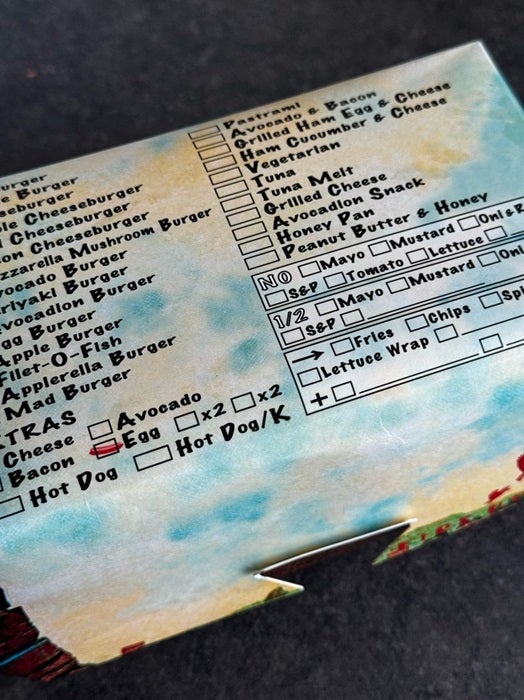 Burger
Burger
Cheeseburger
Cheeseburger
Cheeseburger
Mozzarella Mushroom Burger
Avocado Burger
Teriyaki Burger
Avocadion Burger
Egg Burger
Apple Burger
Filet-O-Fish
Applerella Burger
Mad Burger
EXTRAS
Cheese Avocado
Bacon Egg x2 x2
Hot Dog Hot Dog/K
Pastrami
Avocado & Bacon
Grilled Ham Egg & Cheese
Ham Cucumber & Cheese
Vegetarian
Tuna
Tuna Melt
Grilled Cheese
Avocadion Snack
Honey Pan
Peanut Butter & Honey
NO Mayo Mustard Oni & R
S&P Tomato Lettuce
1/2 Mayo Mustard Oni
S&P
→ Fries Chips Spi
Lettuce Wrap
+